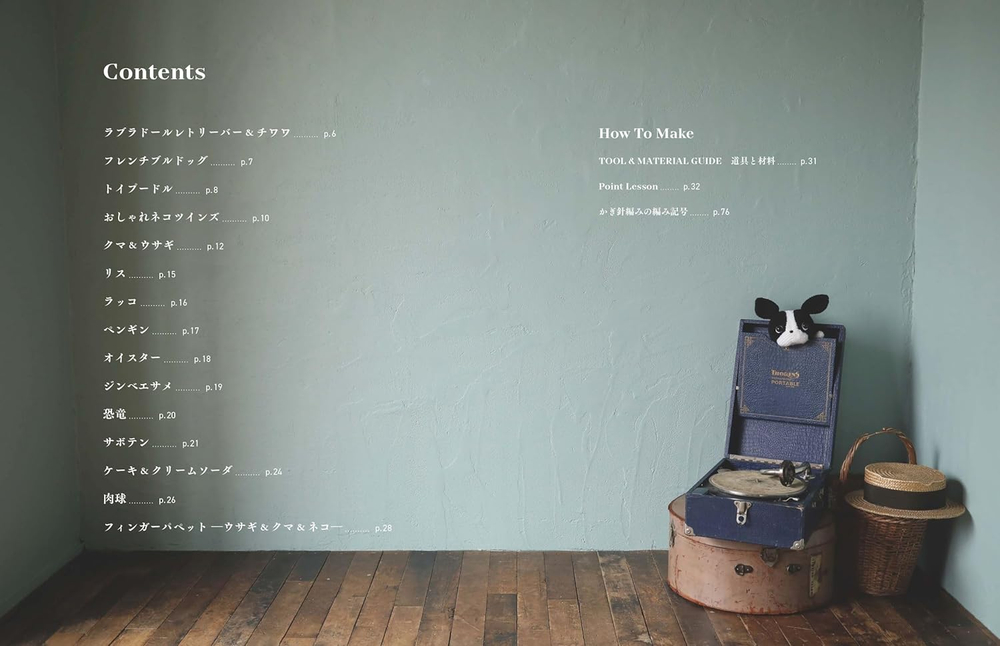 Contents
ラブラドールレトリーバー & チワワ .......... p.6
フレンチブルドッグ .......... p.7
トイプードル .......... p.8
おしゃれネコツインズ .......... p.10
クマ & ウサギ .......... p.12
リス .......... p.15
ラッコ .......... p.16
ペンギン .......... p.17
オイスター .......... p.18
ジンベエサメ .......... p.19
恐竜 .......... p.20
サボテン .......... p.21
ケーキ & クリームソーダ .......... p.24
肉球 .......... p.26
フィンガーパペット ―ウサギ & クマ & ネコ― .......... p.28
How To Make
TOOL & MATERIAL GUIDE 道具と材料 ........ p.31
Point Lesson ........ p.32
かぎ針編みの編み記号 ........ p.76
PORTABLE